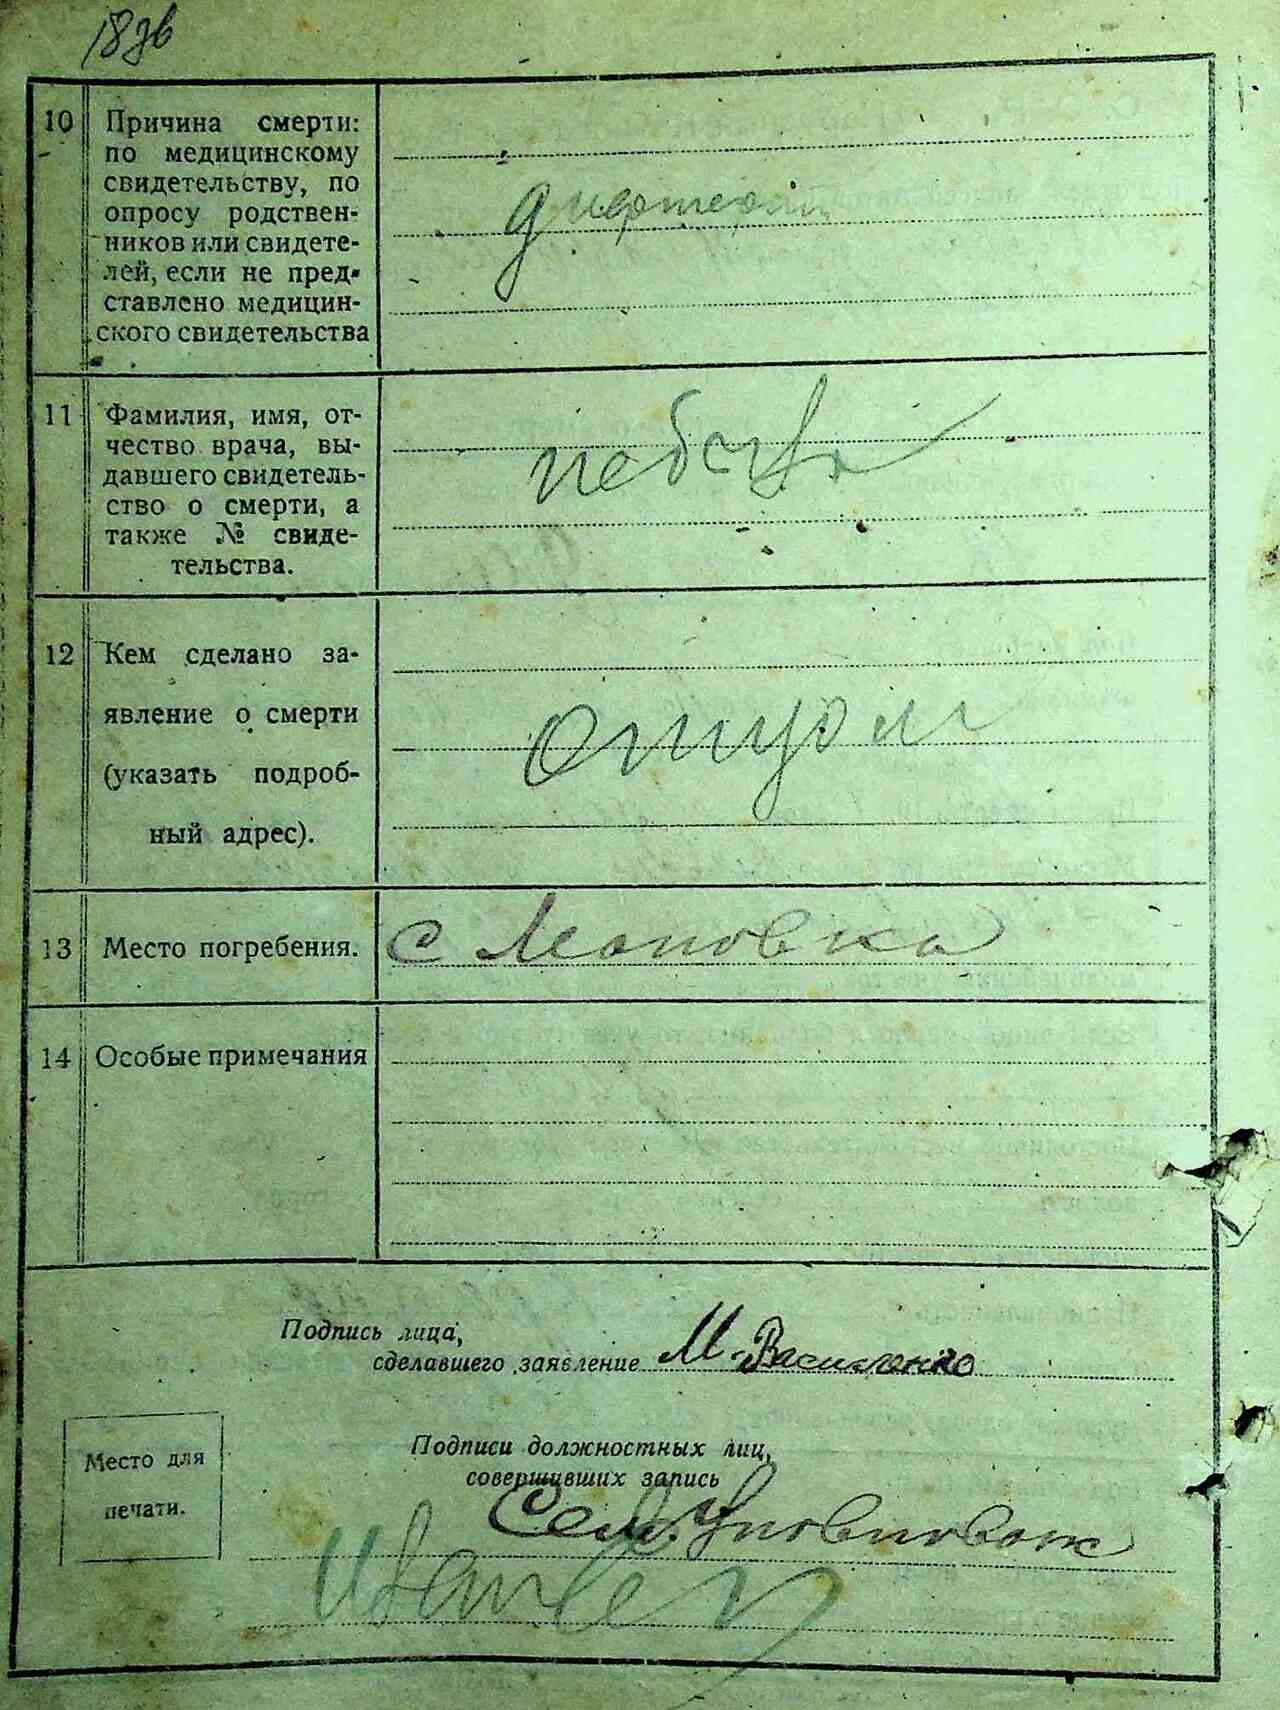 18 зв
10 Причина смерти:
по медицинскому
свидетельству, по
опросу родствен-
ников или свидете-
лей, если не пред-
ставлено медицин-
ского свидетельства
11 Фамилия, имя, от-
чество врача, вы-
давшего свидетель-
ство о смерти, а
также № свиде-
тельства.
12 Кем сделано за-
явление о смерти
(указать подроб-
ный адрес).
отцом
13 Место погребения.
с
14 Особые примечания
Подпись лица,
сделавшего заявление М. Василенко
Подписи должностных лиц,
совершивших запись
Место для
печати.